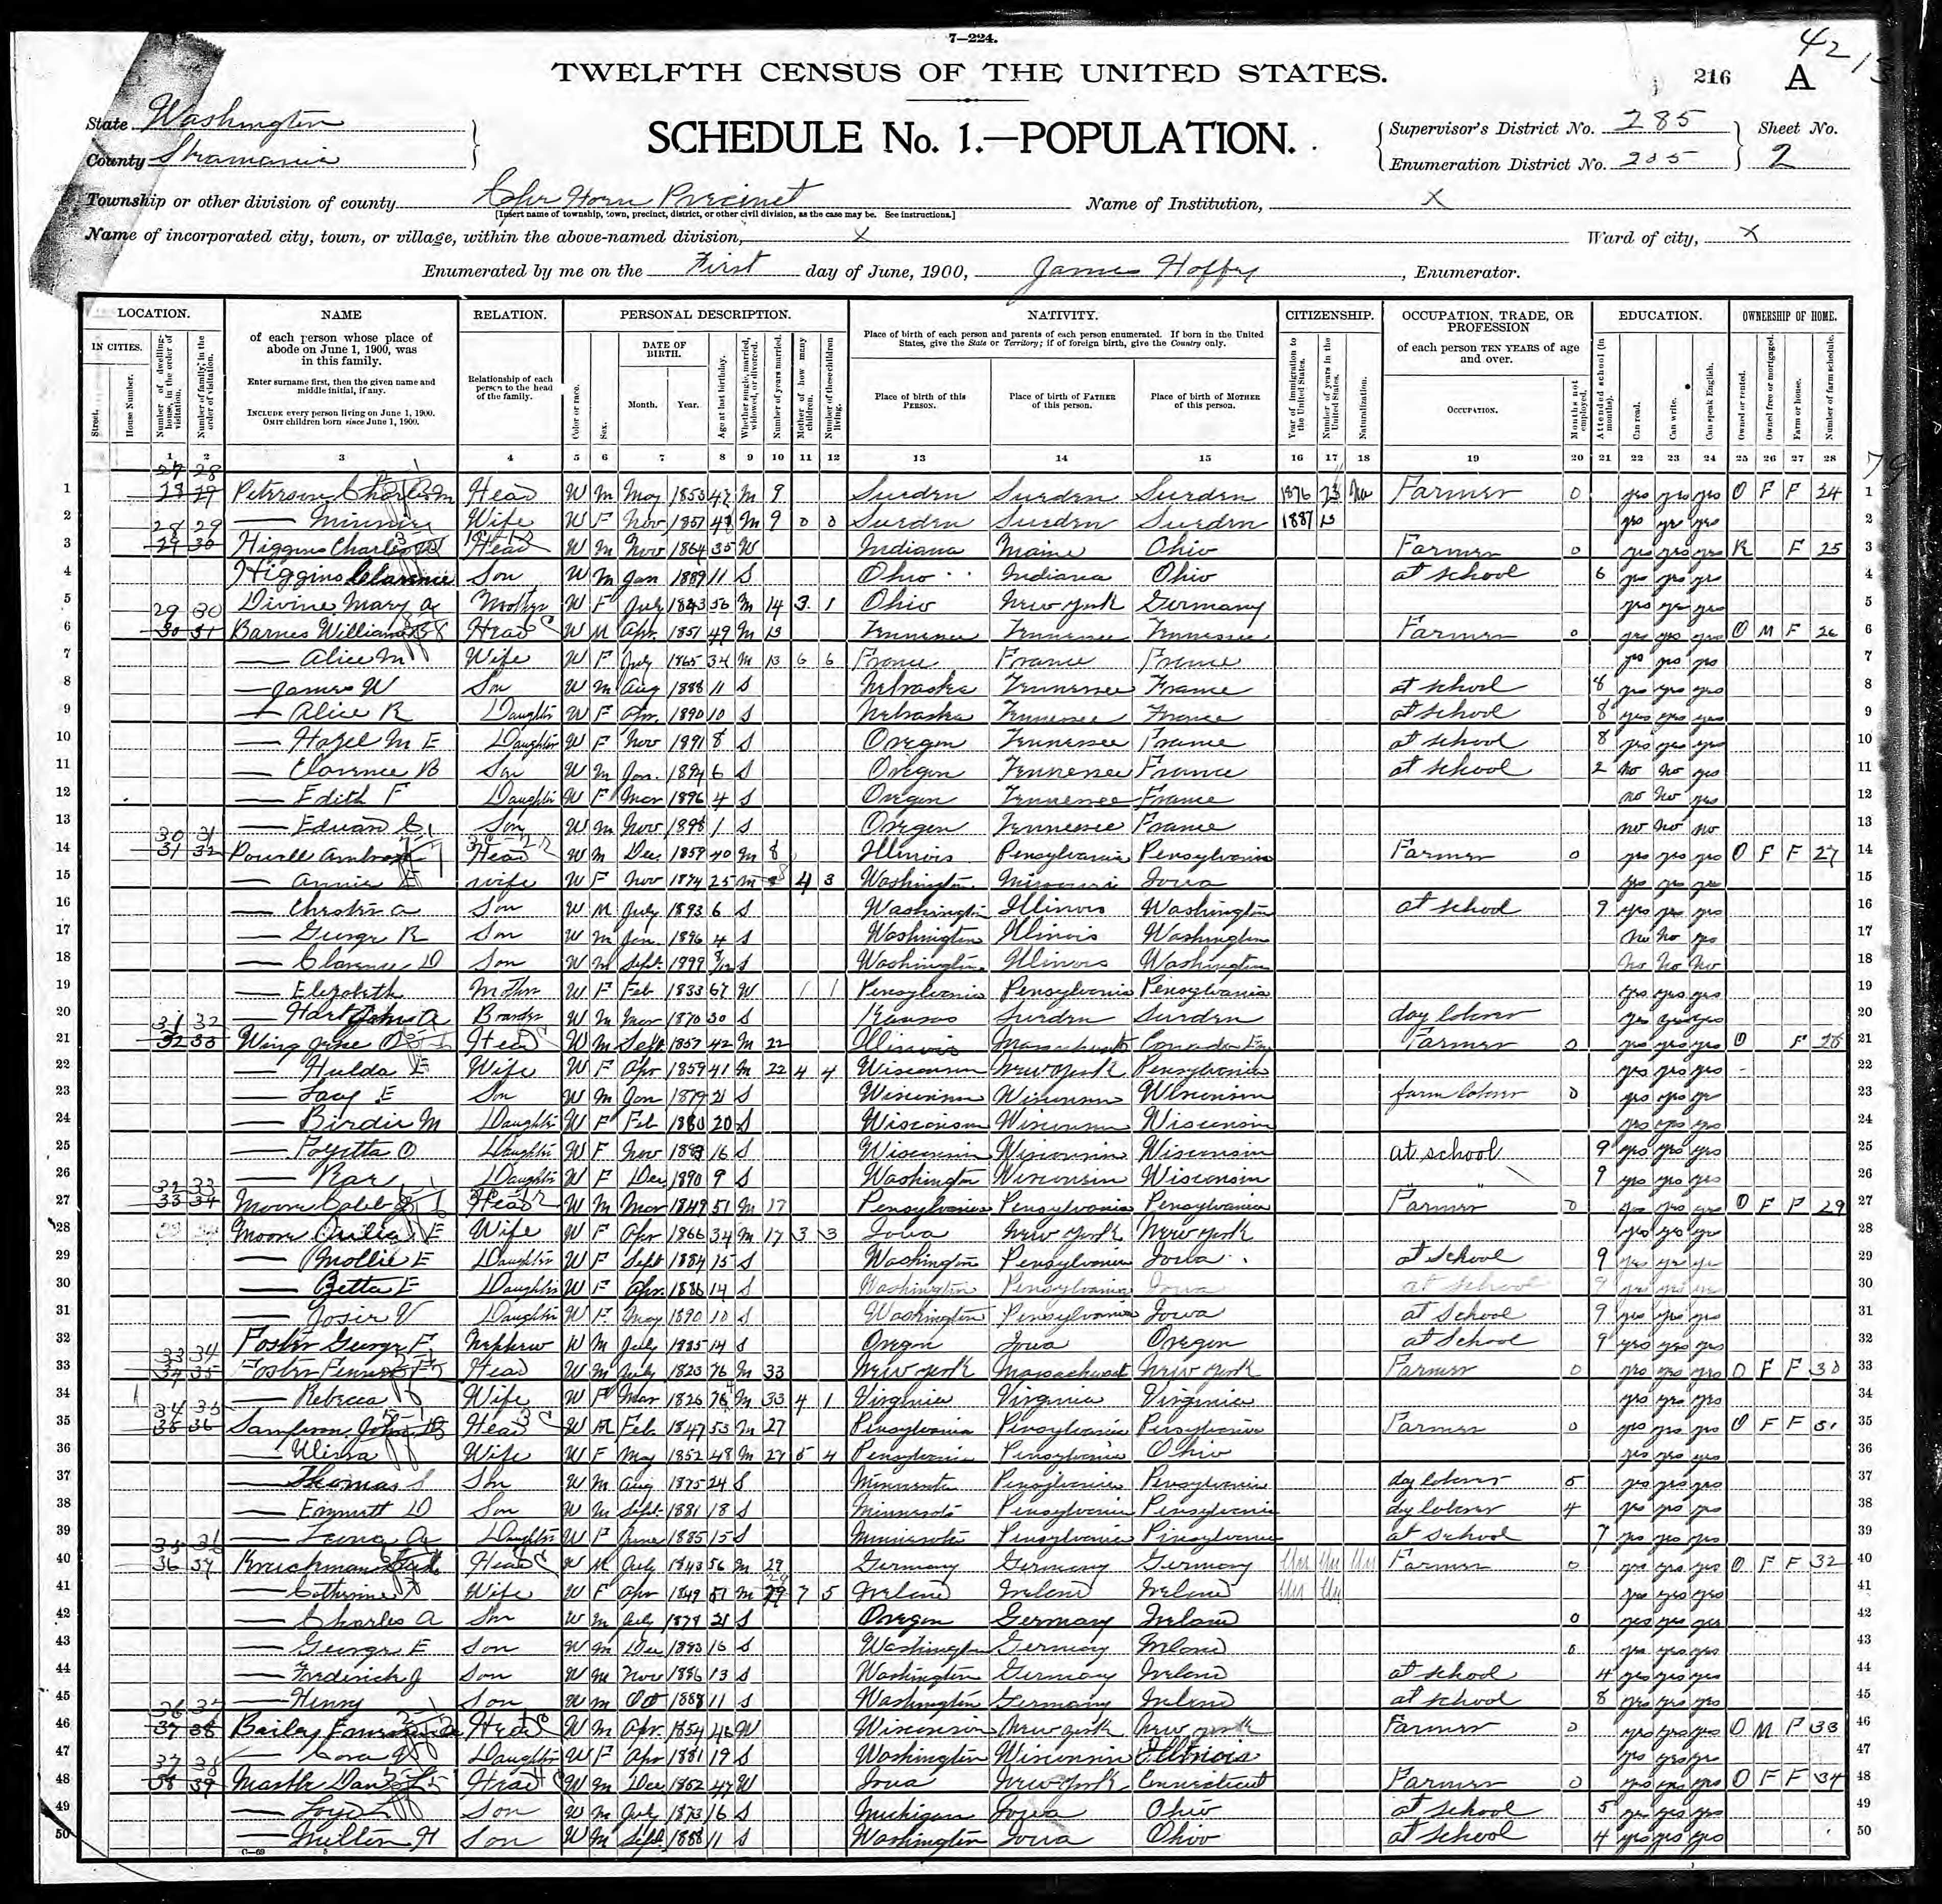 7—224.
42 13
TWELFTH CENSUS OF THE UNITED STATES.
216 A
State Washington
County Skamania
SCHEDULE No. 1.—POPULATION.
Supervisor's District No. 285 Sheet No.
Enumeration District No. 235 2
Township or other division of county Cape Horn Precinct Name of Institution, X
[Insert name of township, town, precinct, district, or other civil division, as the case may be. See instructions.]
Name of incorporated city, town, or village, within the above-named division, X Ward of city, X
Enumerated by me on the First day of June, 1900, James Hoffy, Enumerator.
LOCATION. NAME RELATION. PERSONAL DESCRIPTION. NATIVITY. CITIZENSHIP. OCCUPATION, TRADE, OR PROFESSION EDUCATION. OWNERSHIP OF HOME.
IN CITIES. Street. House Number. Number of dwelling-house, in the order of visitation. Number of family, in the order of visitation.
of each person whose place of abode on June 1, 1900, was in this family.
Enter surname first, then the given name and middle initial, if any.
INCLUDE every person living on June 1, 1900. OMIT children born since June 1, 1900.
Relationship of each person to the head of the family.
Color or race. Sex. DATE OF BIRTH. Month. Year. Age at last birthday. Whether single, married, widowed, or divorced. Number of years married. Mother of how many children. Number of these children living.
Place of birth of each person and parents of each person enumerated. If born in the United States, give the State or Territory; if of foreign birth, give the Country only.
Place of birth of this PERSON. Place of birth of FATHER of this person. Place of birth of MOTHER of this person.
Year of immigration to the United States. Number of years in the United States. Naturalization.
of each person TEN YEARS of age and over. OCCUPATION. Months not employed.
Attended school (in months). Can read. Can write. Can speak English. Owned or rented. Owned free or mortgaged. Farm or house. Number of farm schedule.
1 2 3 4 5 6 7 8 9 10 11 12 13 14 15 16 17 18 19 20 21 22 23 24 25 26 27 28
1 27 28 Peterson Charles M Head W M May 1853 47 M 9 Sweden Sweden Sweden 1876 23 Na Farmer 0 yes yes yes O F F 24 1
2 — Minnie Wife W F Nov 1857 M 9 0 0 Sweden Sweden Sweden 1887 13 yes yes yes 2
3 28 29 Higgins Charles W Head W M Nov 1864 35 W Indiana Maine Ohio Farmer 0 yes yes yes R F 25 3
4 Higgins Clarence Son W M Jan 1889 11 S Ohio Indiana Ohio at school 6 yes yes yes 4
5 Divine Mary A Mother W F July 1843 56 M 14 3 1 Ohio New York Germany yes yes yes 5
6 29 30 Barnes William Head W M Apr. 1851 49 M 13 Tennessee Tennessee Tennessee Farmer 0 yes yes yes O M F 26 6
7 — Alice M Wife W F July 1865 34 M 13 6 6 France France France yes yes yes 7
8 — James W Son W M Aug 1888 11 S Nebraska Tennessee France at school 8 yes yes yes 8
9 — Alice R Daughter W F Apr. 1890 10 S Nebraska Tennessee France at school 8 yes yes yes 9
10 — Hazel M E Daughter W F Nov 1891 8 S Oregon Tennessee France at school 8 yes yes yes 10
11 — Clarence B Son W M Jan. 1894 6 S Oregon Tennessee France at school 2 no no yes 11
12 — Edith F Daughter W F Mar 1896 4 S Oregon Tennessee France no no yes 12
13 — Edward C Son W M Nov 1898 1 S Oregon Tennessee France no no no 13
14 30 31 Powell Ambrose Head W M Dec 1859 40 M 8 Illinois Pensylvania Pensylvania Farmer 0 yes yes yes O F F 27 14
15 — Annie E wife W F Nov 1874 25 M 8 4 3 Washington Missouri Iowa yes yes yes 15
16 — Chester A Son W M July 1893 6 S Washington Illinois Washington at school 9 yes yes yes 16
17 — George R Son W M Jan. 1896 4 S Washington Illinois Washington no no yes 17
18 — Clarence D Son W M Sept. 1899 8/12 S Washington Illinois Washington no no no 18
19 — Elizabeth Mother W F Feb 1833 67 W 1 1 Pensylvania Pensylvania Pensylvania yes yes yes 19
20 — Hart John A Boarder W M Mar 1870 30 S Kansas Sweden Sweden day laborer yes yes yes 20
21 31 32 Wing Head W M Sept. 1857 42 M 22 Illinois Massachusetts Canada En Farmer 0 yes yes yes O F 28 21
22 — Hulda E Wife W F Apr 1859 41 M 22 4 4 Wisconsin New York Pensylvania yes yes yes 22
23 — E Son W M Jan 1879 21 S Wisconsin Wisconsin Wisconsin farm laborer 0 yes yes yes 23
24 — Birdie M Daughter W F Feb 1880 20 S Wisconsin Wisconsin Wisconsin yes yes yes 24
25 — Fayetta O Daughter W F Nov 1883 16 S Wisconsin Wisconsin Wisconsin at school 9 yes yes yes 25
26 — Rae Daughter W F Dec 1890 9 S Washington Wisconsin Wisconsin 9 yes yes yes 26
27 32 33 Moore Caleb Head W M Mar 1849 51 M 17 Pensylvania Pensylvania Pensylvania Farmer 0 yes yes yes O F F 29 27
28 Moore E Wife W F Apr 1866 34 M 17 3 3 Iowa New York New York yes yes yes 28
29 — Mollie E Daughter W F Sept 1884 15 S Washington Pensylvania Iowa at school 9 yes yes yes 29
30 — Betta E Daughter W F Apr. 1886 14 S Washington Pensylvania Iowa at school 9 yes yes yes 30
31 — Josie V Daughter W F May 1890 10 S Washington Pensylvania Iowa at School 9 yes yes yes 31
32 Foster George F Nephew W M July 1885 14 S Oregon Iowa Oregon at School 9 yes yes yes 32
33 33 34 Foster Head W M July 1823 76 M 33 New York Massachuset New York Farmer 0 yes yes yes O F F 30 33
34 — Rebecca Wife W F Mar 1826 M 33 4 1 Virginia Virginia Virginia yes yes yes 34
35 34 35 Sampson John D Head W M Feb. 1847 53 M 27 Pensylvania Pensylvania Pensylvania Farmer 0 yes yes yes O F F 31 35
36 — Wife W F May 1852 48 M 27 5 4 Pensylvania Pensylvania Ohio yes yes yes 36
37 — Thomas S Son W M Aug 1875 24 S Minnesota Pensylvania Pensylvania day laborer 5 yes yes yes 37
38 — Emmett D Son W M Sept. 1881 18 S Minnesota Pensylvania Pensylvania day laborer 4 yes yes yes 38
39 — A Daughter W F June 1885 15 S Minnesota Pensylvania Pensylvania at school 7 yes yes yes 39
40 36 37 Head W M July 1843 56 M 29 Germany Germany Germany Un Un Un Farmer 0 yes yes yes O F F 32 40
41 — Catherine Wife W F Apr 1849 51 M 29 7 5 Ireland Ireland Ireland Un Un yes yes yes 41
42 — Charles A Son W M July 1878 21 S Oregon Germany Ireland 0 yes yes yes 42
43 — George E Son W M Dec 1883 16 S Washington Germany Ireland 0 yes yes yes 43
44 — Frederick J Son W M Nov 1886 13 S Washington Germany Ireland at school 4 yes yes yes 44
45 — Henry Son W M Oct 1888 11 S Washington Germany Ireland at school 8 yes yes yes 45
46 36 37 Bailey Head W M Apr. 1854 46 W Wisconsin New York New York Farmer 0 yes yes yes O M F 33 46
47 — Cora Daughter W F Apr 1881 19 S Washington Wisconsin Illinois yes yes yes 47
48 37 38 Head W M Dec 1852 47 W Iowa New York Connecticut Farmer 0 yes yes yes O F F 34 48
49 — Son W M July 16 S Michigan Iowa Ohio at school 5 yes yes yes 49
50 — Milton H Son W M Sept. 1888 11 S Washington Iowa Ohio at school 4 yes yes yes 50